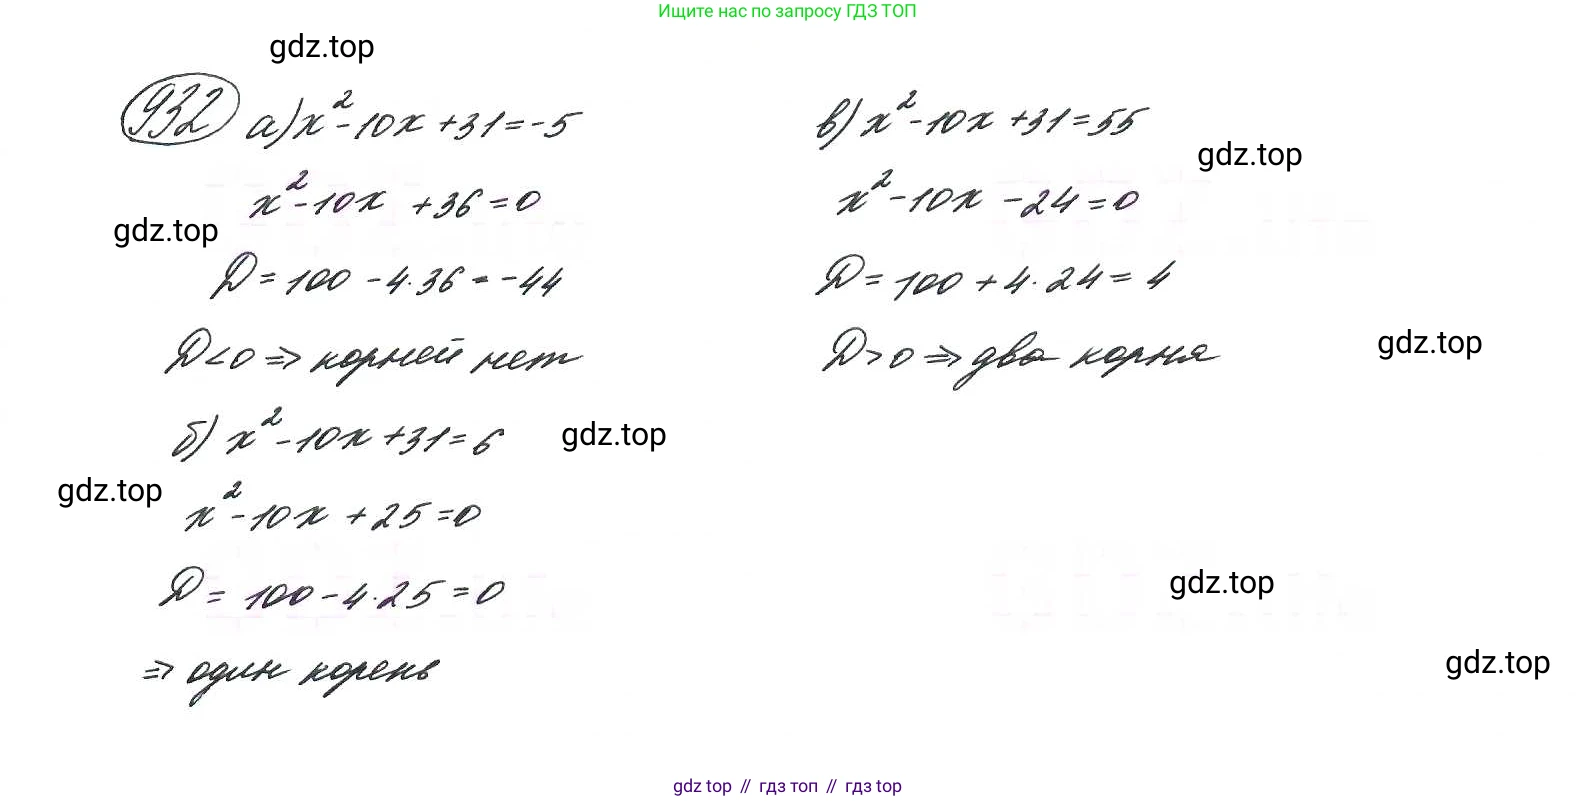 Ищите нас по запросу ГДЗ ТОП
gdz.top
932 а) x² - 10x + 31 = -5
x² - 10x + 36 = 0
gdz.top
D = 100 - 4·36 = -44
D < 0 ⇒ корней нет
б) x² - 10x + 31 = 6
gdz.top
gdz.top
x² - 10x + 25 = 0
D = 100 - 4·25 = 0
⇒ один корень
в) x² - 10x + 31 = 55
gdz.top
x² - 10x - 24 = 0
D = 100 + 4·24 = 4
gdz.top
D > 0 ⇒ два корня
gdz.top
gdz.top
gdz top // гдз топ // гдз top